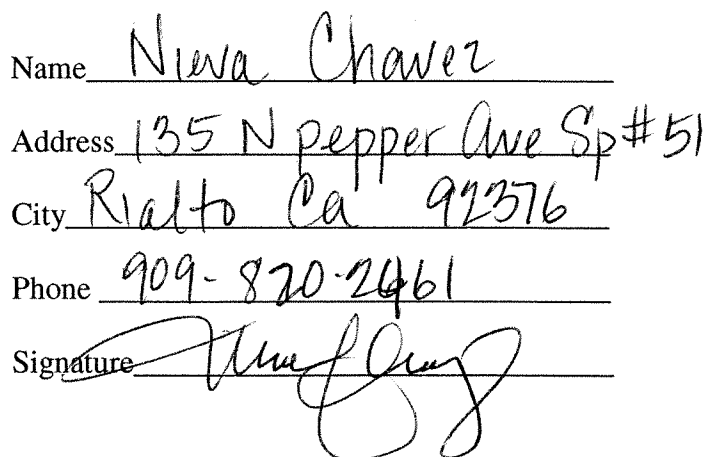 Name Nieva Chavez
Address 135 N pepper Ave Sp#51
City Rialto Ca 92376
Phone 909-820-2461
Signature